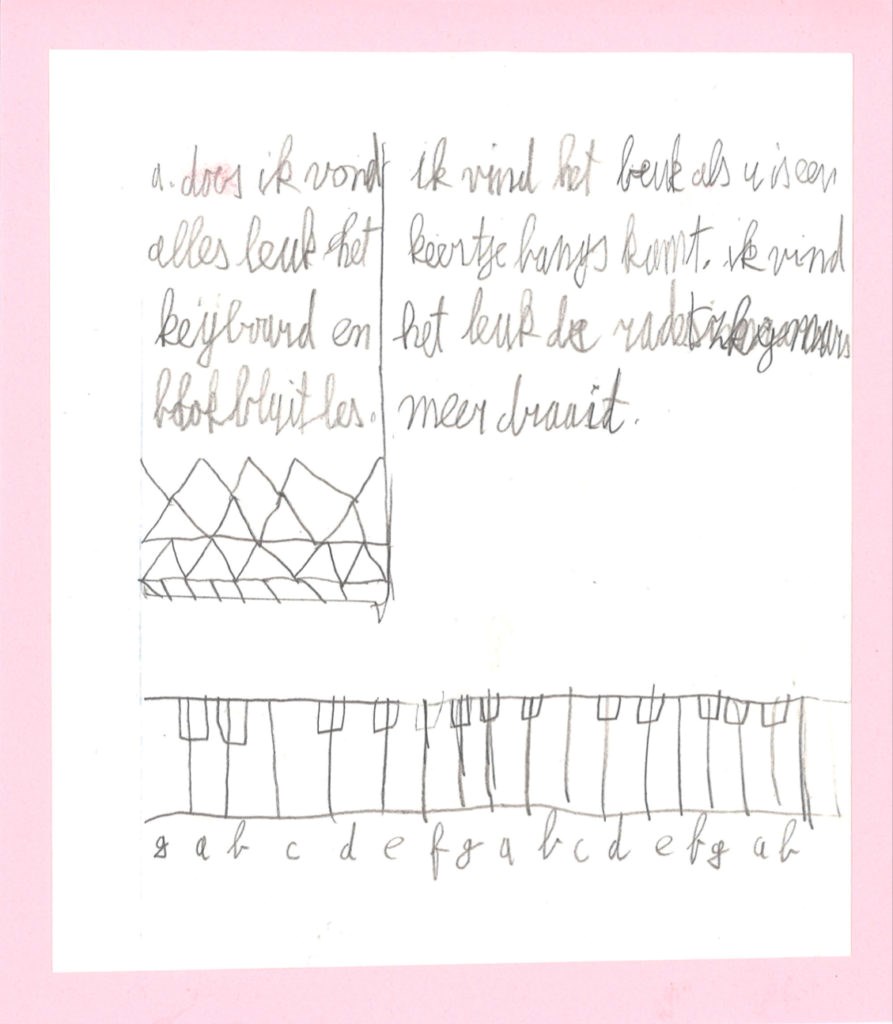 ik vond
alles leuk het
keijboard en
les.
ik vind het leuk als u is een
keertje langs komt. ik vind
het leuk de
meer draait.
g a b c d e f g a b c d e f g a b